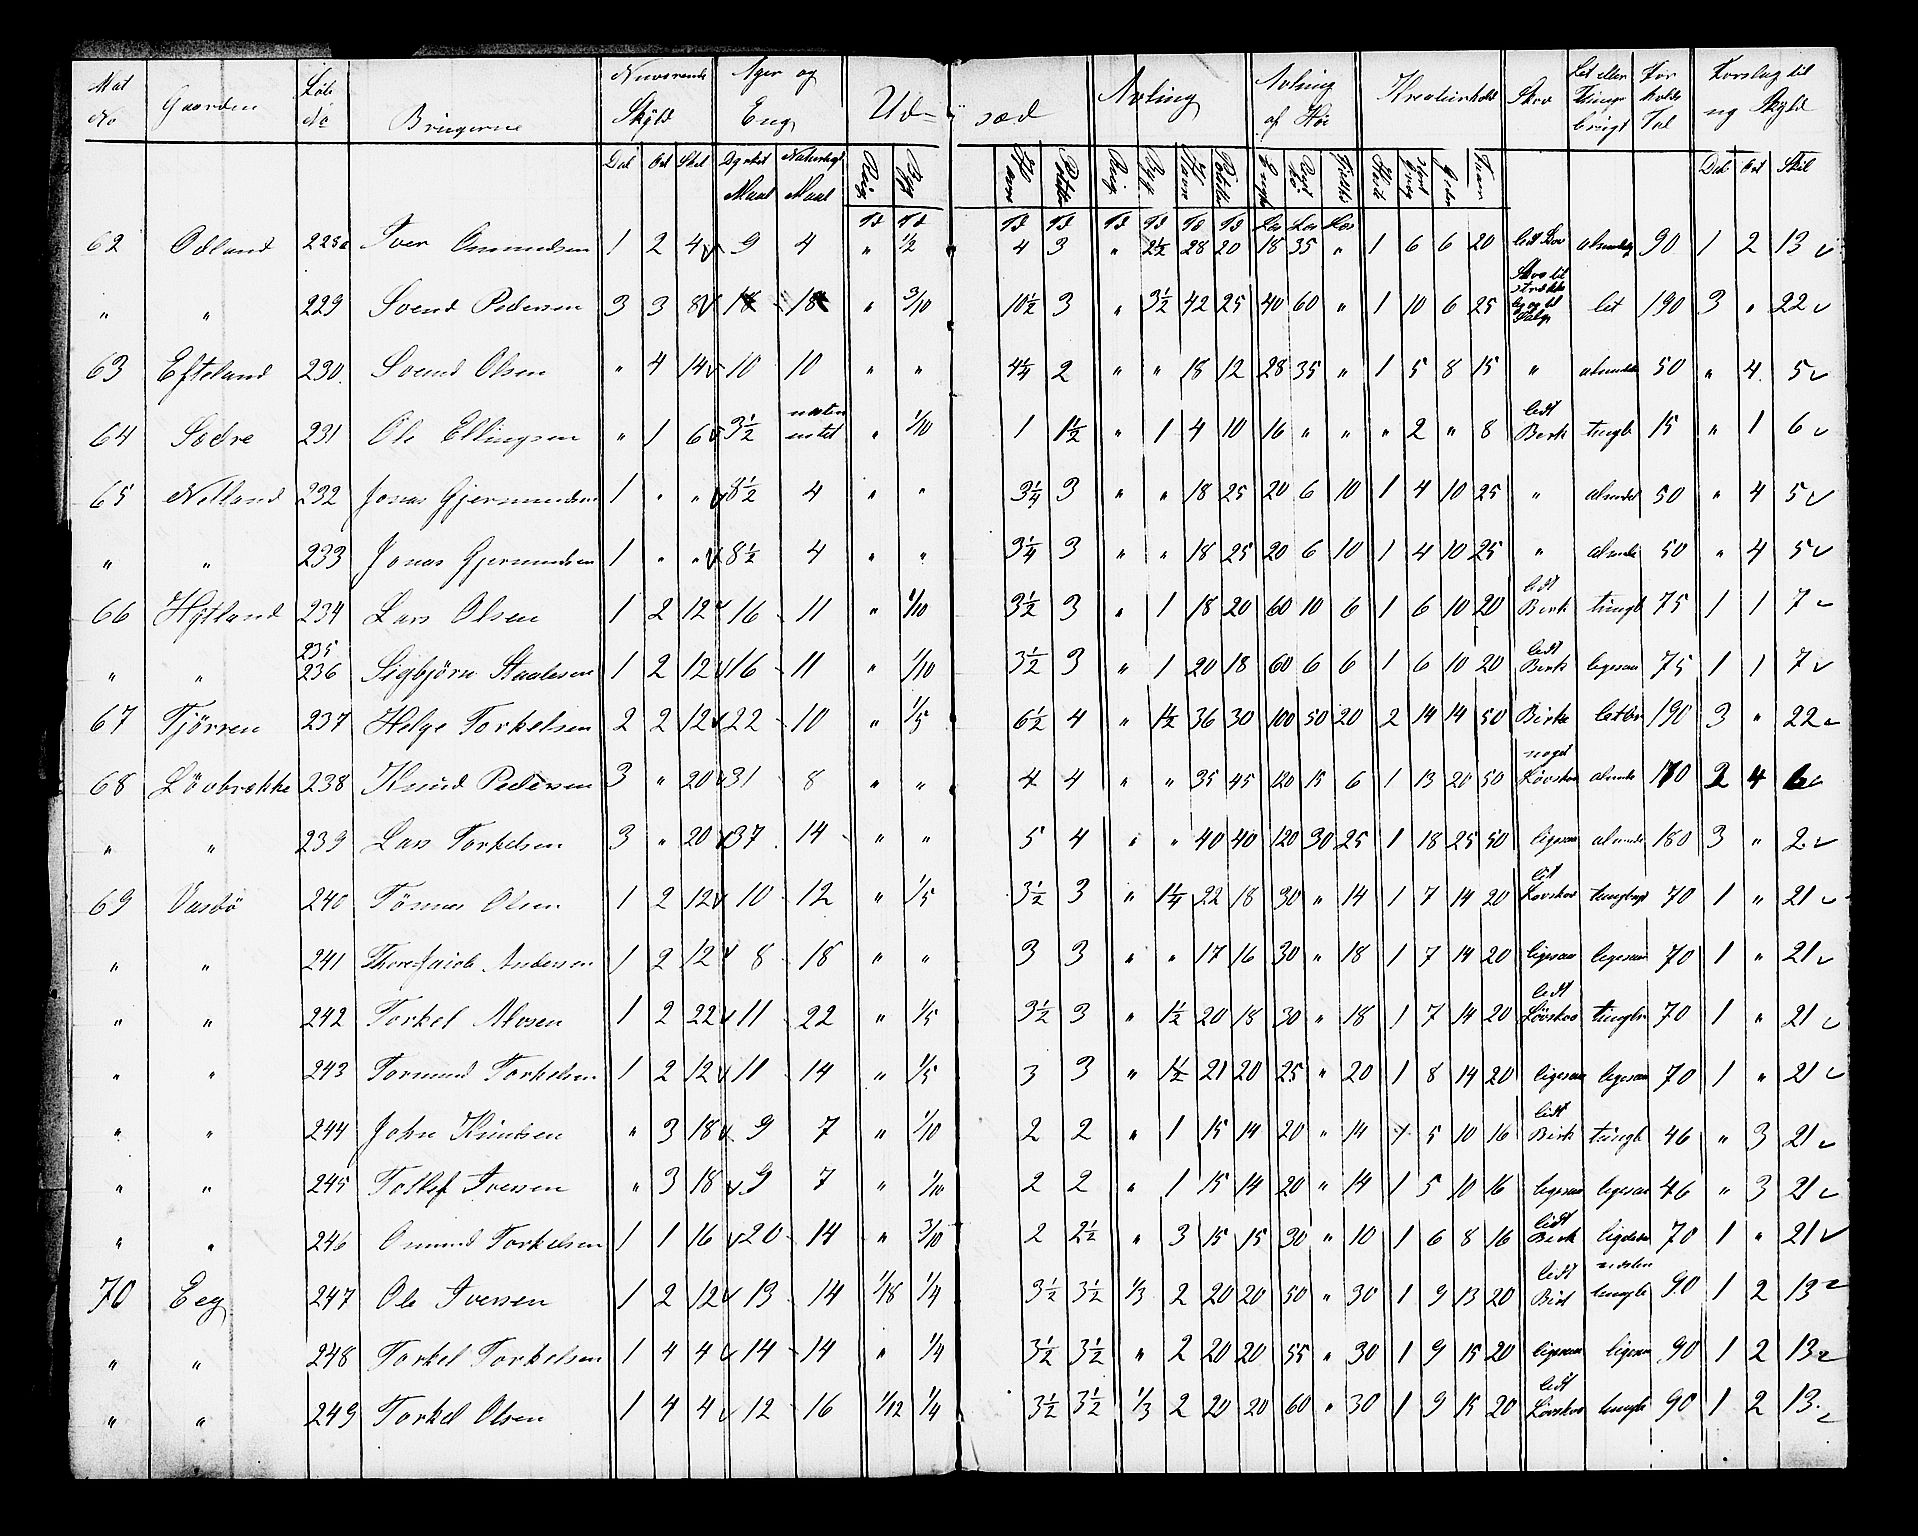 Mat No Gaarden Løb No Brugerne Nuværende Skyld Ager og Eng Ud- sæd Avling Avling af Høi Kreaturhold Skov let eller Tungt brugt For holds Tal Forslag til ny Skyld
Dal Ort Skil Dyrket Maal Naturligt Maal Rug Byg Havre Potet Rug Byg Havre Potet Hest Faar Dal Ort Skil
Td Td Td Td Td Td Td Td Læs Læs Læs
62 Odland 225a Iver Omundsen 1 2 4 9 4 " 1/2 4 3 " 2½ 28 20 18 35 " 1 6 6 20 lidt Skov almindelig 90 1 2 13
" " 229 Svend Pedersen 3 3 8 18 18 " 3/10 10½ 3 " 3½ 42 25 40 60 " 1 10 6 25 Skov til og til Salg let 190 3 " 22
63 Efteland 230 Svend Olsen " 4 14 10 10 " " 4¼ 2 " " 18 12 28 35 " 1 5 8 15 " alminde 50 " 4 5
64 Sødre 231 Ole Ellingsen " 1 6 3½ næsten intet " 1/10 1 1½ " 1 4 10 16 " " " 2 " 8 lidt Birk tungb 15 " 1 6
65 Netland 232 Jonas Gjermundsen 1 " " 8½ 4 " " 3¼ 3 " " 18 25 20 6 10 1 4 10 25 " almindel 50 " 4 5
" " 233 Jonas Gjermundsen 1 " " 8½ 4 " " 3¼ 3 " " 18 25 20 6 10 1 4 10 25 " alminde 50 " 4 5
66 Hytland 234 Lars Olsen 1 2 12 16 11 " 1/10 3½ 3 " 1 18 20 60 10 6 1 6 10 20 lidt Birk tungb 75 1 1 7
" " 235 236 Sigbjørn Staalesen 1 2 12 16 11 " 1/10 3½ 3 " 1 20 18 60 6 6 1 6 10 20 lidt Birk ligesaa 75 1 1 7
67 Tjörren 237 Helge Torkelsen 2 2 12 22 10 " 1/5 6½ 4 " 1½ 36 30 100 50 20 2 14 14 50 Birke letbr 190 3 " 22
68 Lövbrække 238 Knud Pedersen 3 " 20 31 8 " " 4 4 " " 35 45 120 15 6 1 13 20 50 noget Løvskov alminde 170 2 4 6
" " 239 Lars Torkelsen 3 " 20 37 14 " " 5 4 " " 40 40 120 30 25 1 18 25 50 ligesaa alminde 180 3 " 2
69 Vasbö 240 Tönnes Olsen 1 2 12 10 12 " 1/5 3½ 3 " 1¼ 22 18 30 " 14 1 7 14 20 lit Løvskov tungbrugt 70 1 " 21
" " 241 Thore Jacob Andersen 1 2 12 8 18 " " 3 3 " " 17 16 30 " 18 1 7 14 20 ligesaa ligesaa 70 1 " 21
" " 242 Torkel Alosen 1 2 22 11 22 " 1/5 3½ 3 " 1½ 20 18 30 " 18 1 7 14 20 lidt Løvskov tungbr 70 1 " 21
" " 243 Tormund Torkelsen 1 2 12 11 14 " 1/5 3 3 " 1½ 21 20 25 " 20 1 8 14 20 ligesaa ligesaa 70 1 " 21
" " 244 John Knudsen " 3 18 9 7 " 1/10 2 2 " 1 15 14 20 " 14 1 5 10 16 lidt Birk tungb 46 " 3 21
" " 245 Tollef Iversen " 3 18 9 7 " 1/10 2 2 " 1 15 14 20 " 14 1 5 10 16 ligesaa ligesaa 46 " 3 21
" " 246 Omund Torkelsen 1 1 16 20 14 " 3/10 2 2½ " 3 15 15 30 " 10 1 6 8 16 lidt Birk 70 1 " 21
70 Eeg 247 Ole Iversen 1 2 12 13 14 1/18 1/4 3½ 3½ 1/3 2 20 20 50 " 30 1 9 13 20 lidt Birk tungb 90 1 2 13
" " 248 Torkel Torkelsen 1 4 4 14 14 " 1/4 3½ 3½ " 2 20 20 55 " 30 1 9 15 20 ligesaa ligesaa 90 1 2 13
" " 249 Torkel Olsen 1 4 4 12 16 1/12 1/4 3½ 3½ 1/3 2 20 20 60 " 30 1 9 15 20 lidt Løvskov tungb 90 1 2 13